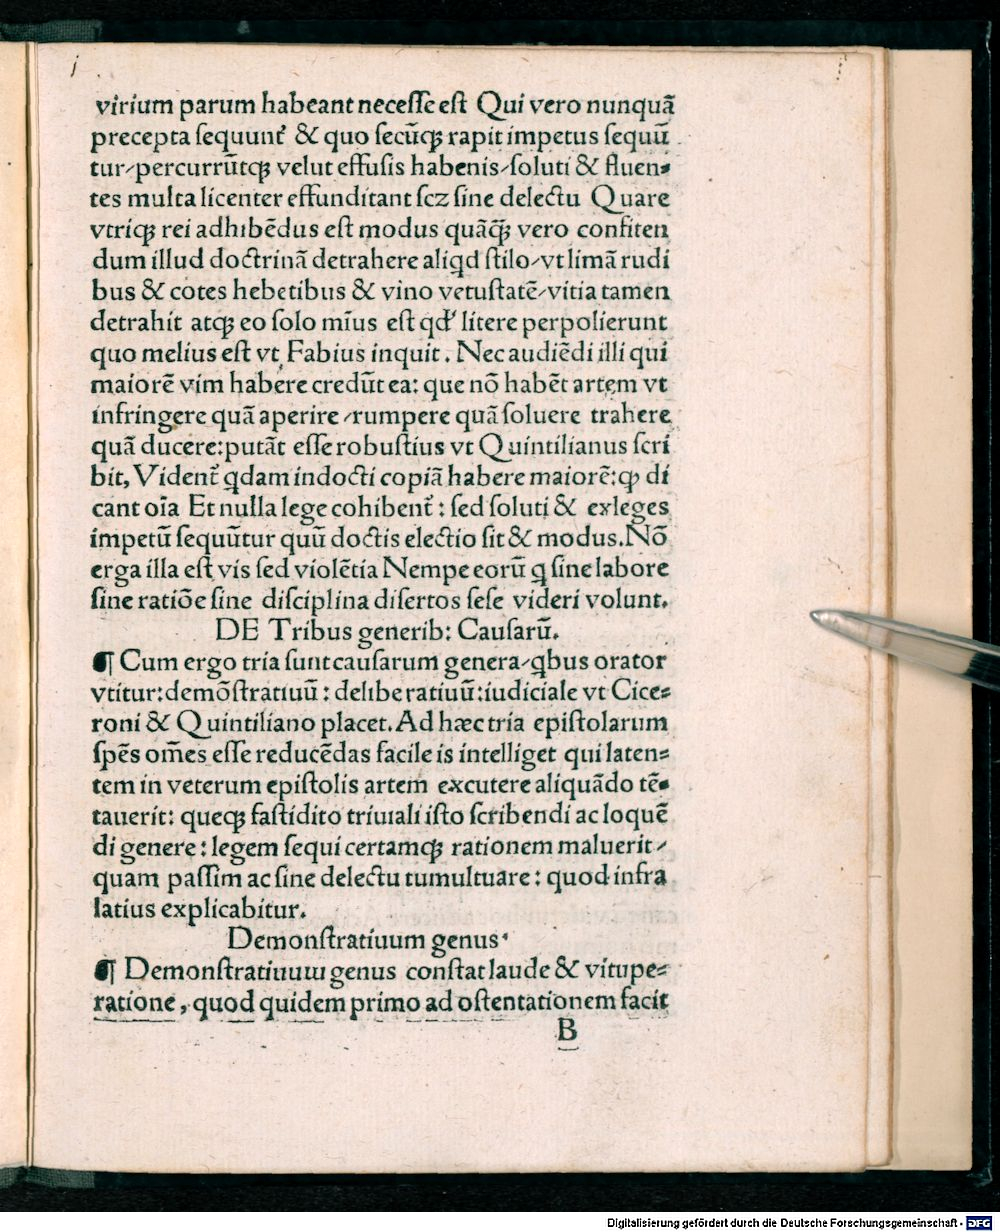 virium parum habeant neceſſe eſt Qui vero nunquã
precepta ſequunt᷑ & quo ſecũqꝫ rapit impetus ſequũ
tur⸝percurrũtqꝫ velut effuſis habenis⸝ſoluti & fluen⸗
tes multa licenter effunditant ſcꝫ ſine delectu Quare
vtriqꝫ rei adhibẽdus eſt modus quãq̃ꝫ vero confiten
dum illud doctrinã detrahere aliqd ſtilo⸝vt limã rudi
bus & cotes hebetibus & vino vetuſtatẽ⸝vitia tamen
detrahit atqꝫ eo ſolo mĩus eſt qd᷑ litere perpolierunt
quo melius eſt vt Fabius inquit. Nec audiẽdi illi qui
maiorẽ vim habere credũt ea: que nõ habẽt artem vt
infringere quã aperire⸝rumpere quã ſoluere trahere
quã ducere:putãt eſſe robuſtius vt Quintilianus ſcri
bit, Vident᷑ qdam indocti copiã habere maiorẽ:ꝙ di
cant oĩa Et nulla lege cohibent᷑ : ſed ſoluti & exleges
impetũ ſequũtur quũ doctis electio ſit & modus.Nõ
erga illa eſt vis ſed violẽtia Nempe eorũ q ſine labore
ſine ratiõe ſine diſciplina diſertos ſeſe videri volunt.
DE Tribus generib: Cauſarũ.
¶ Cum ergo tria ſunt cauſarum genera⸝qbus orator
vtitur:demõſtratiuũ : deliberatiuũ:iudiciale vt Cice⸗
roni & Quintiliano placet. Ad hæc tria epiſtolarum
ſpẽs om̃es eſſe reducẽdas facile is intelliget qui laten⸗
tem in veterum epiſtolis artem excutere aliquãdo tẽ⸗
tauerit: queqꝫ faſtidito triuiali iſto ſcribendi ac loquẽ
di genere : legem ſequi certamqꝫ rationem maluerit⸝
quam paſſim ac ſine delectu tumultuare : quod infra
latius explicabitur.
Demonſtratiuum genus
¶ Demonſtratiuuɯ genus conſtat laude & vitupe⸗
ratione, quod quidem primo ad oſtentationem facit
B
Digitalisierung gefördert durch die Deutsche Forschungsgemeinschaft - DFG